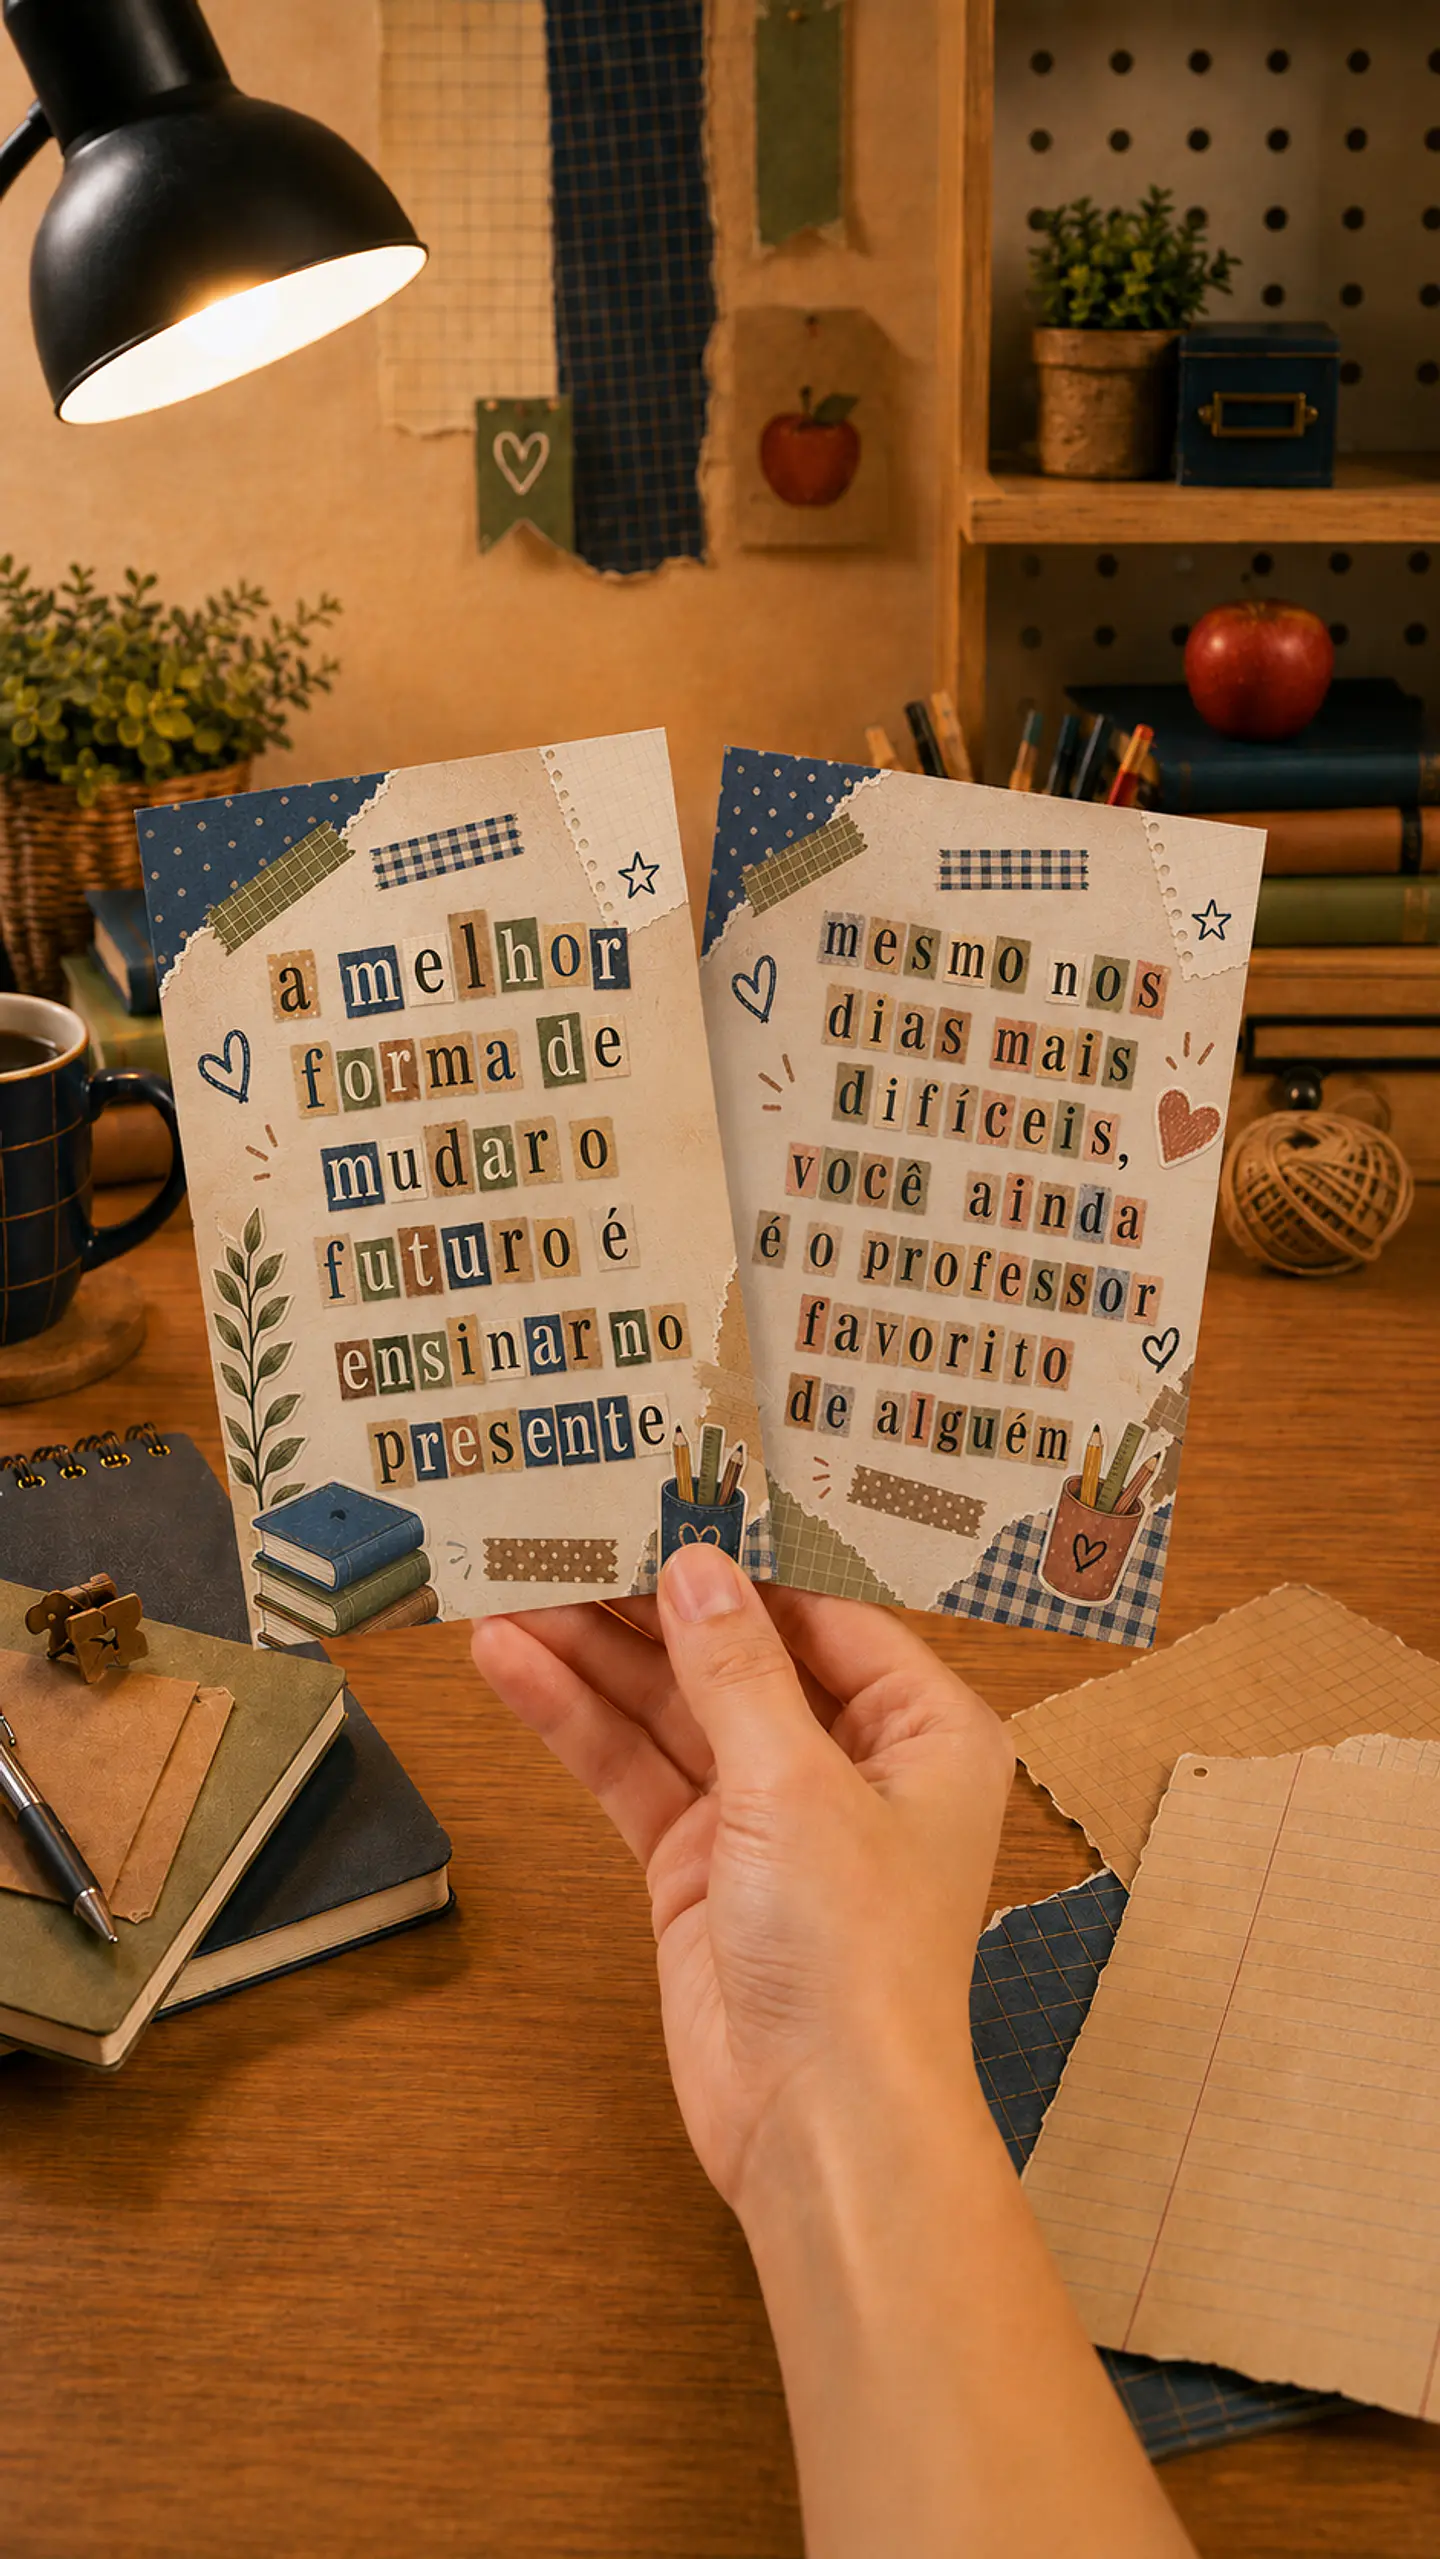 a melhor
forma de
mudar o
futuro é
ensinar no
presente
mesmo nos
dias mais
difíceis,
você ainda
é o professor
favorito
de alguém